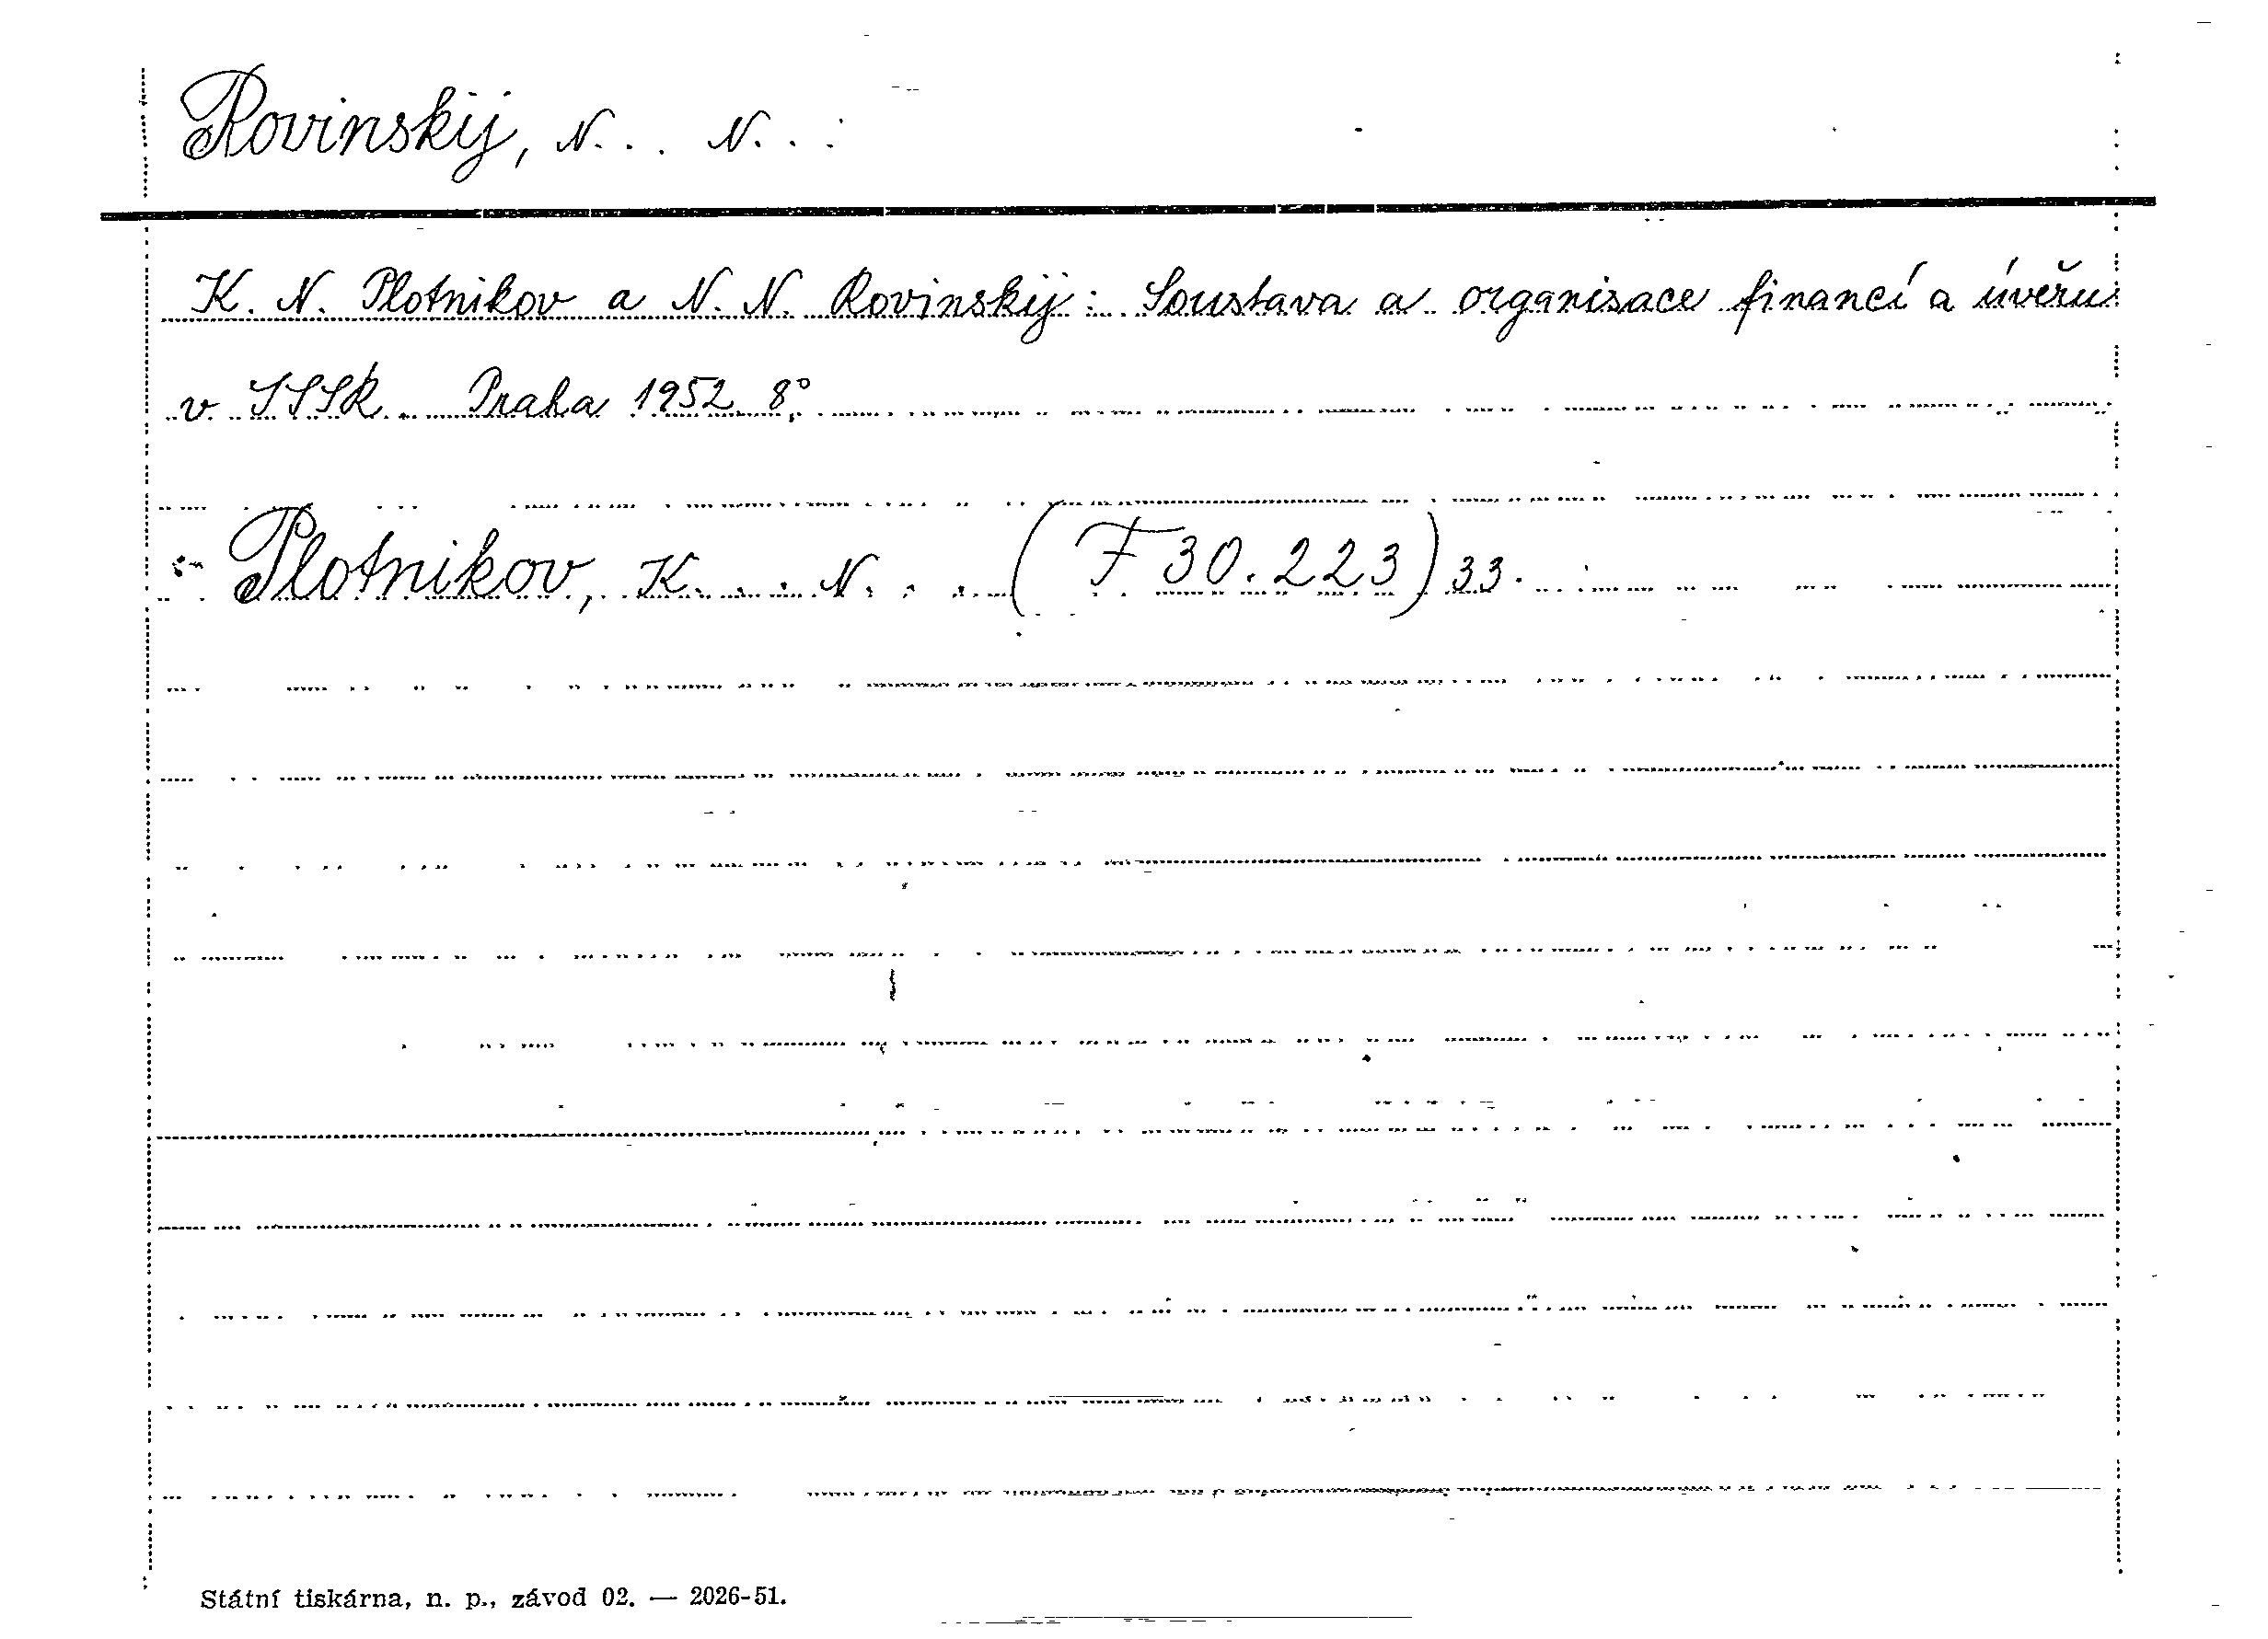 Rovinskij, N... N...:
K. N. Plotnikov a N. N. Rovinskij: Soustava a organisace financí a úvěru
v SSSR. Praha 1952. 8°.
Plotnikov, K... N... (F 30.223) 33.
Státní tiskárna, n. p., závod 02. — 2026-51.